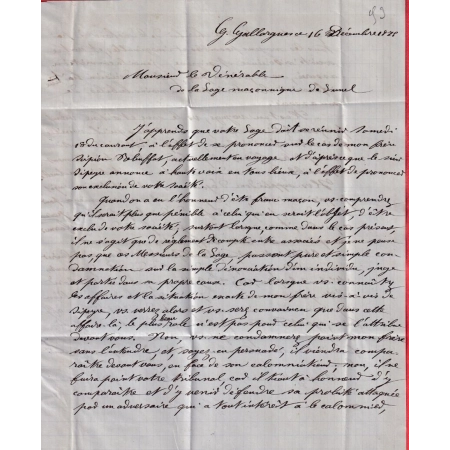 93
G. Gallargues ce 16 Décembre 1871
Monsieur le Vénérable
de la Loge maçonnique de Lunel
J'apprends que votre Loge doit se réunir Samedi
du courant, à l'effet de se prononcer sur le cas de mon frère
actuellement en voyage et d'après ce que le
annonce à haute voix en tous lieux, à l'effet de prononcer
son exclusion de votre société.
Quand on a eu l'honneur d'être franc maçon, vs comprendrez
qu'il serait plus que pénible à celui qui en serait l'objet, d'être
exclu de votre société, surtout lorsque, comme dans le cas présent,
il ne s'agit que de règlement de compte entre associés et je ne pense
pas, que ces Messieurs de la Loge, puissent faire et simple con-
damnation sur la simple dénonciation d'un individu, juge
et partie dans sa propre cause. Car lorsque vs connaîtrez
les affaires et la situation exacte de mon frère vis à vis de
vs verrez alors et vs serez convaincu que dans cette
affaire là, le plus beau role n'est pas pour celui qui se l'attribue
devant vous. Non, vs ne condamnerez point mon frère
sans l'entendre et, soyez en persuadé, il viendra compa-
raître devant vous, en face de son calomniateur, non, il ne
fuira point votre tribunal, car il tient à honneur d'y
comparaître et d'y venir défendre sa probité attaquée
par un adversaire qui a tout intérêt à le calomnier,